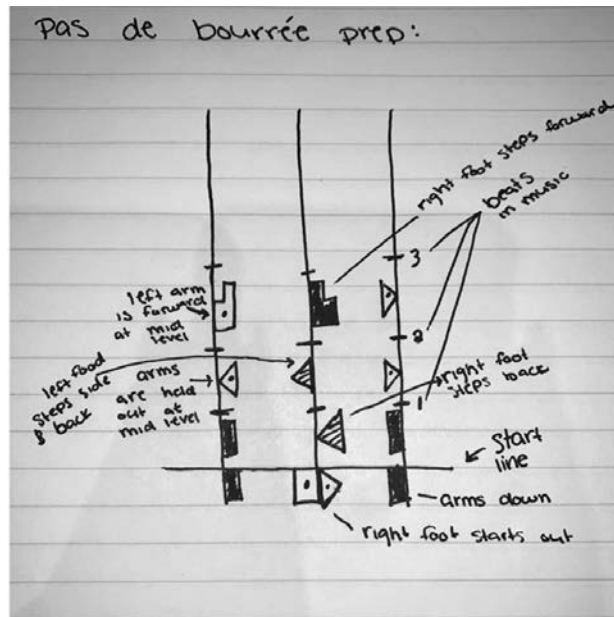 pas de bourrée prep:
right foot steps forward
beats
in music
3
left arm
is forward
at mid
level
2
left food
steps side
& back
arms
are held
out at
mid level
right foot
steps back
1
start
line
arms down
right foot starts out